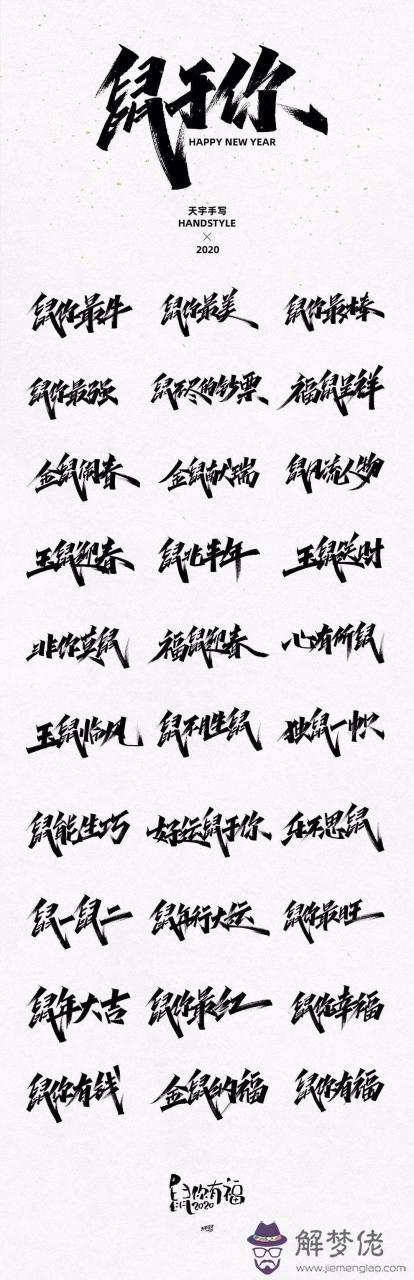 鼠于你
HAPPY NEW YEAR
天宇手写
HANDSTYLE
×
2020
鼠你最牛 鼠你最美 鼠你最棒
鼠你最强 鼠不尽的钞票 福鼠呈祥
金鼠闹春 金鼠献瑞 鼠风流人物
玉鼠迎春 鼠兆丰年 玉鼠送财
非你莫鼠 福鼠迎春 心有所鼠
玉鼠临风 鼠不胜鼠 独鼠一帜
鼠能生巧 好运鼠于你 乐不思鼠
鼠一鼠二 鼠年行大运 鼠你最旺
鼠年大吉 鼠你最红 鼠你幸福
鼠你有钱 金鼠的福 鼠你有福
鼠你有福
2020
解梦佬
www.jiemenglao.com